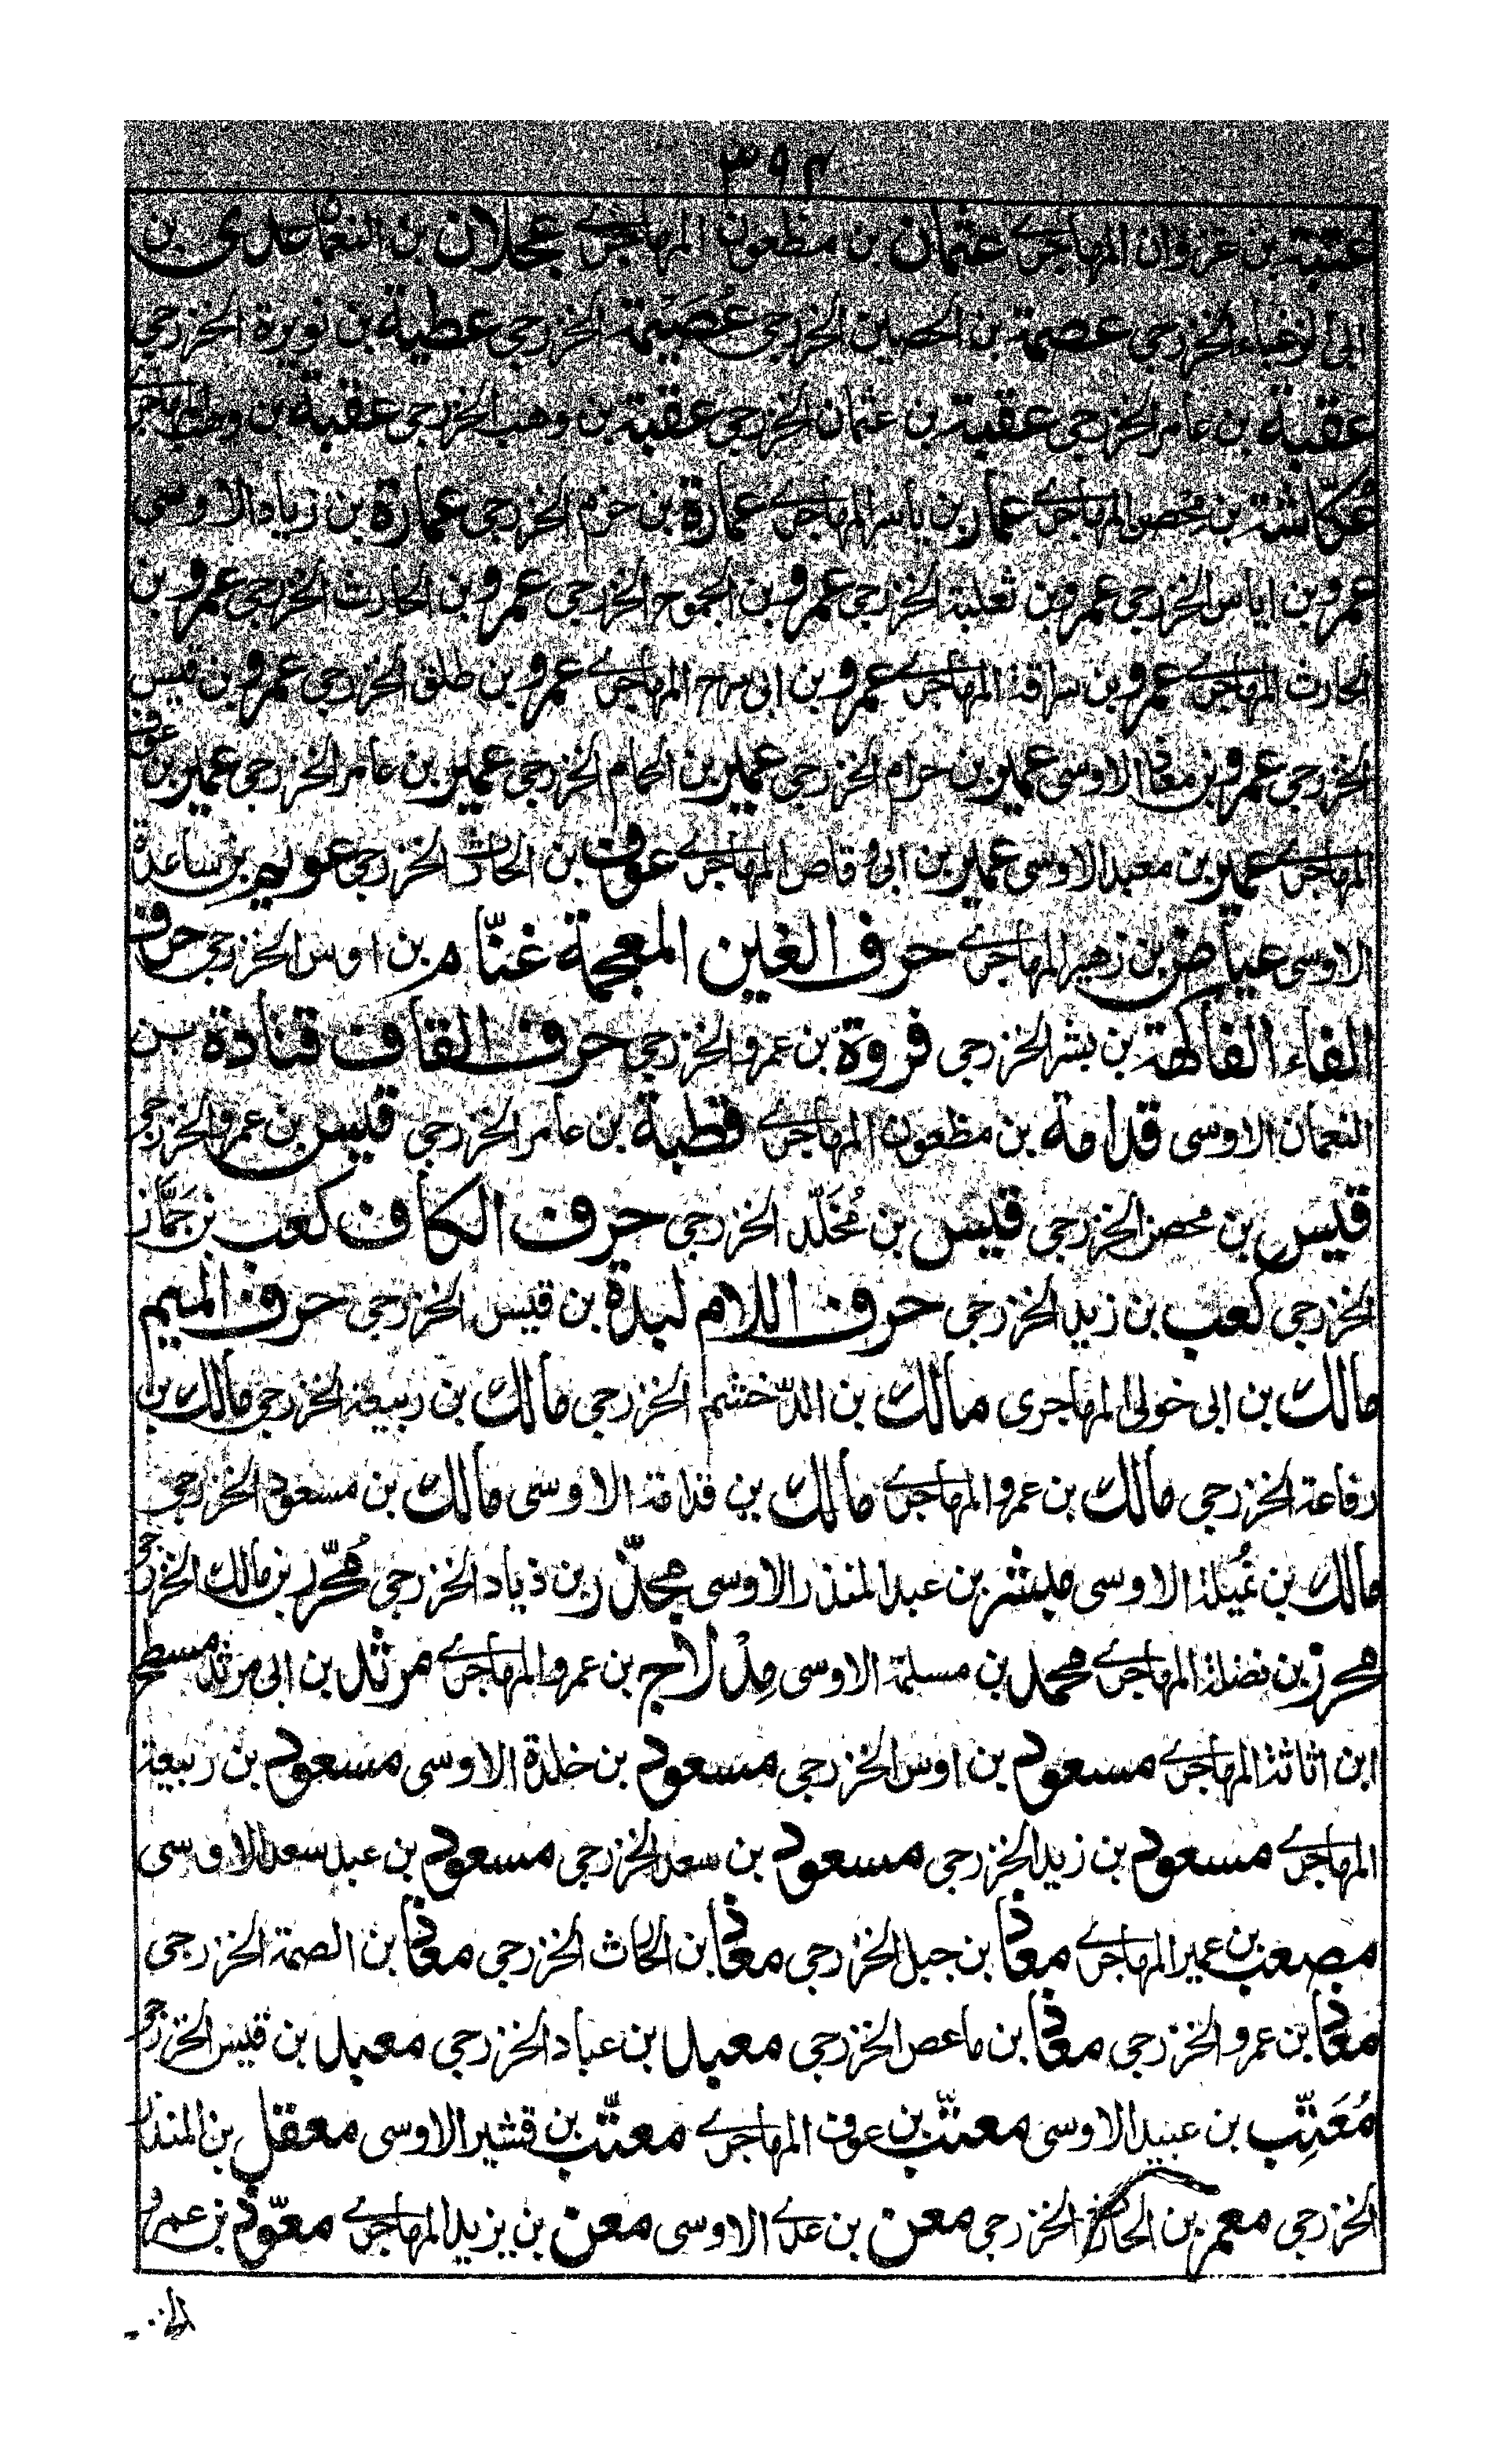 ٣٩٢
عتبة بن غزوان المهاجرے عثمان بن مظعون المهاجرے عجلان بن النعمان عدی بن
ابی الزغباء الخزرجی عصمة بن الحصین الخزرجی عُصَیْمة الخزرجی عطیة بن نویرة الخزرجی
عقبة بن عامر الخزرجی عقبة بن عثمان الخزرجی عقبة بن وهب الخزرجی عقبة بن وهب المهاجری
عُکّاشة بن محصن المهاجرے عمار بن یاسر المهاجرے عمارة بن حزم الخزرجی عمارة بن زیاد الاوسی
عمرو بن ایاس الخزرجی عمرو بن ثعلبة الخزرجی عمرو بن الجموح الخزرجی عمرو بن الحارث الخزرجی عمرو بن
الحارث المهاجرے عمرو بن سراقة المهاجرے عمرو بن ابی سرح المهاجرے عمرو بن طلق الخزرجی عمرو بن قیس
الخزرجی عمرو بن معاذ الاوسی عمیر بن حرام الخزرجی عمیر بن الحمام الخزرجی عمیر بن عامر الخزرجی عمیر بن عوف
المهاجرے عمیر بن معبد الاوسی عمیر بن ابی وقاص المهاجرے عوف بن الحارث الخزرجی عویم بن ساعدة
الاوسی عیاض بن زهیر المهاجرے حرف الغین المعجمة غنّام بن اوس الخزرجی حرف
الفاء الفاکهة بن بشر الخزرجی فروة بن عمرو الخزرجی حرف القاف قتادة بن
النعمان الاوسی قدامة بن مظعون المهاجرے قطبة بن عامر الخزرجی قیس بن عمرو الخزرجی
قیس بن محصن الخزرجی قیس بن مُخَلّد الخزرجی حرف الکاف کعب بن جَمَّاز
الخزرجی کعب بن زید الخزرجی حرف اللام لبدة بن قیس الخزرجی حرف المیم
مالک بن ابی خولی المهاجری مالک بن الدّخشم الخزرجی مالک بن ربیعة الخزرجی مالک بن
رفاعة الخزرجی مالک بن عمرو المهاجرے مالک بن قدامة الاوسی مالک بن مسعود الخزرجی
مالک بن نُمیلة الاوسی مبشر بن عبد المنذر الاوسی مجذّر بن ذیاد الخزرجی مُحرّر بن مالک الخزرجی
محرز بن نضلة المهاجرے محمد بن مسلمة الاوسی مِدْلاج بن عمرو المهاجرے مرثد بن ابی مرثد مسطح
ابن اثاثة المهاجرے مسعود بن اوس الخزرجی مسعود بن خلدة الاوسی مسعود بن ربیعة
المهاجرے مسعود بن زید الخزرجی مسعود بن سعد الخزرجی مسعود بن عبد سعد الاوسی
مصعب بن عمیر المهاجرے معاذ بن جبل الخزرجی معاذ بن الحارث الخزرجی معاذ بن الصمة الخزرجی
معاذ بن عمرو الخزرجی معاذ بن ماعص الخزرجی معبد بن عباد الخزرجی معبد بن قیس الخزرجی
مُعَتِّب بن عبید الاوسی معتّب بن عوف المهاجرے معتّب بن قشیر الاوسی معقل بن المنذر
الخزرجی معمر بن الحارث الخزرجی معن بن عدے الاوسی معن بن یزید المهاجرے معوّذ بن عمرو